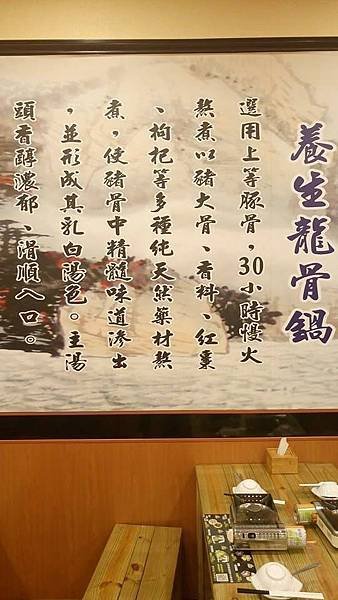 養生龍骨鍋
選用上等豚骨，30小時慢火
熬煮以豬大骨、香料、紅棗
、枸杞等多種純天然藥材熬
煮，使豬骨中精髓味道滲出
，並形成其乳白湯色。主湯
頭香醇濃郁、滑順入口。